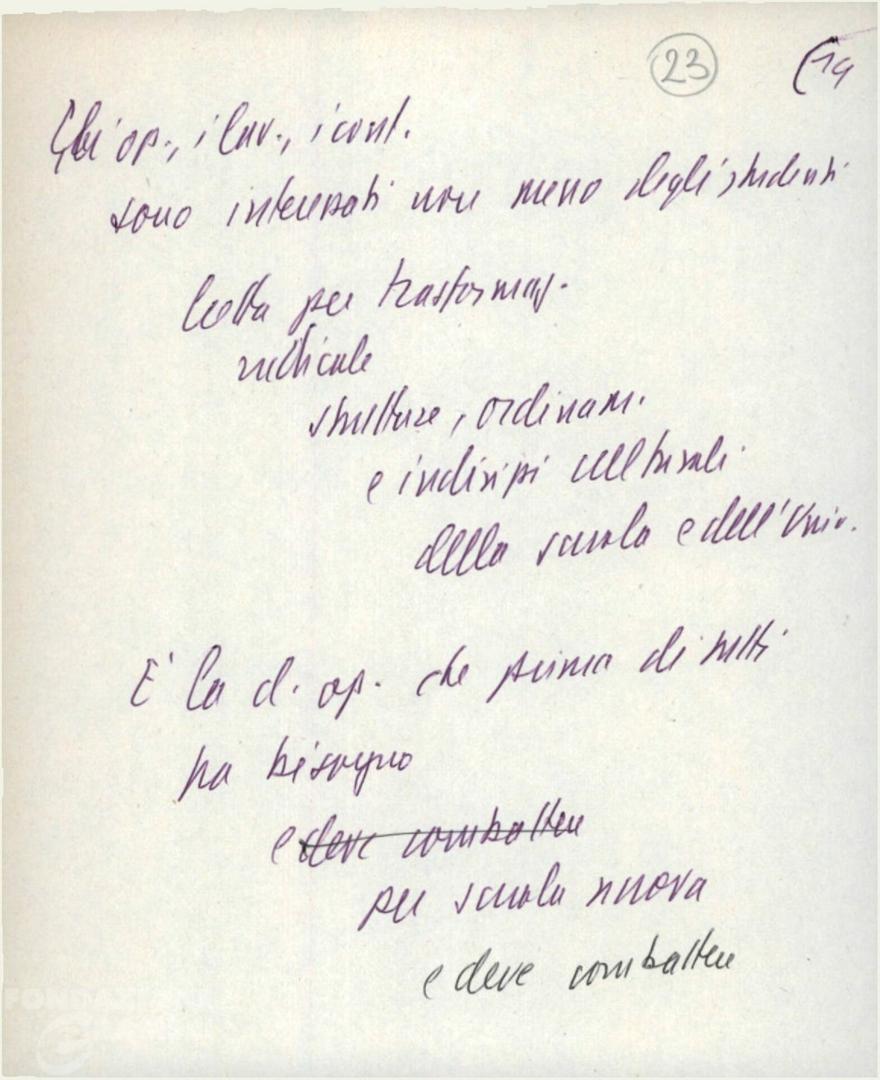 23 (14
Gli op., i lav., i cont.
sono interessati non meno degli studenti
lotta per trasformaz.
radicale
strutture, ordinam.
e indirizzi culturali
della scuola e dell'Univ.
E' la cl. op. che prima di tutti
ha bisogno
e deve combattere
per scuola nuova
e deve combattere
FONDAZIONE